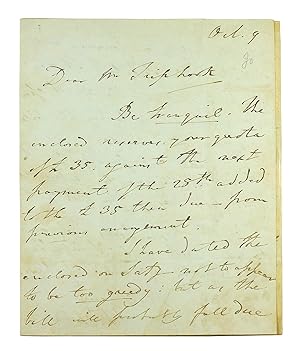 Oct. 9
Dear Mr Triphook
Be tranquil. The
enclosed reserves your quota
of £35. against the next
payment of the 25th added
to the £35 then due - from
previous arrangement.
I have dated the
enclosed on Saty - not to appear
to be too greedy: but as the
bill will probably fall due